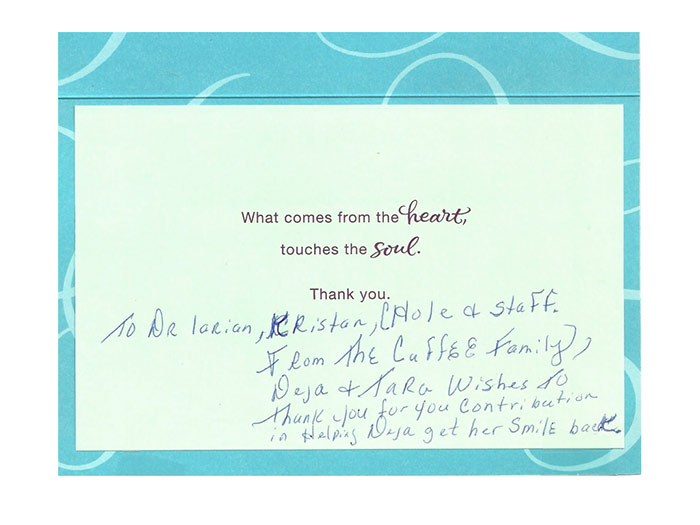 What comes from the heart,
touches the soul.
Thank you.
To Dr Iarian, Kristan, CHole & staff.
From The CuffEE Family,
Deja & Tara Wishes To
thank you for you Contribution
in Helping Deja get her Smile back.